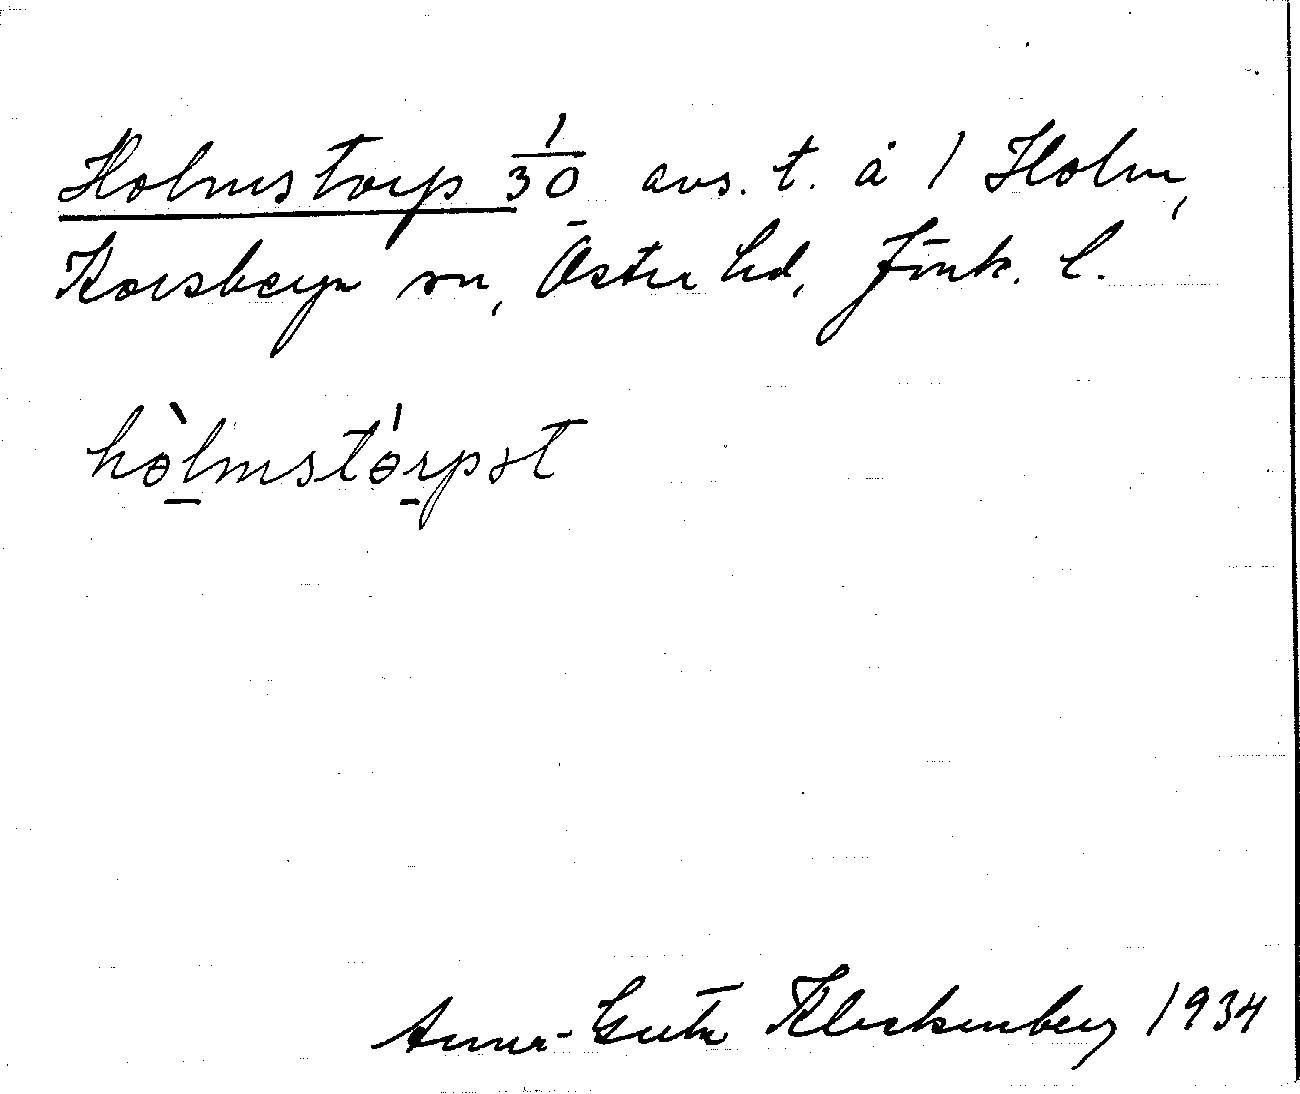 Holmstorp 1/30 avs. t. å 1 Holm,
Korsberga sn, Östra hd, Jönk. l.
hòlmstórpət
Anna-Greta Klockenberg 1934